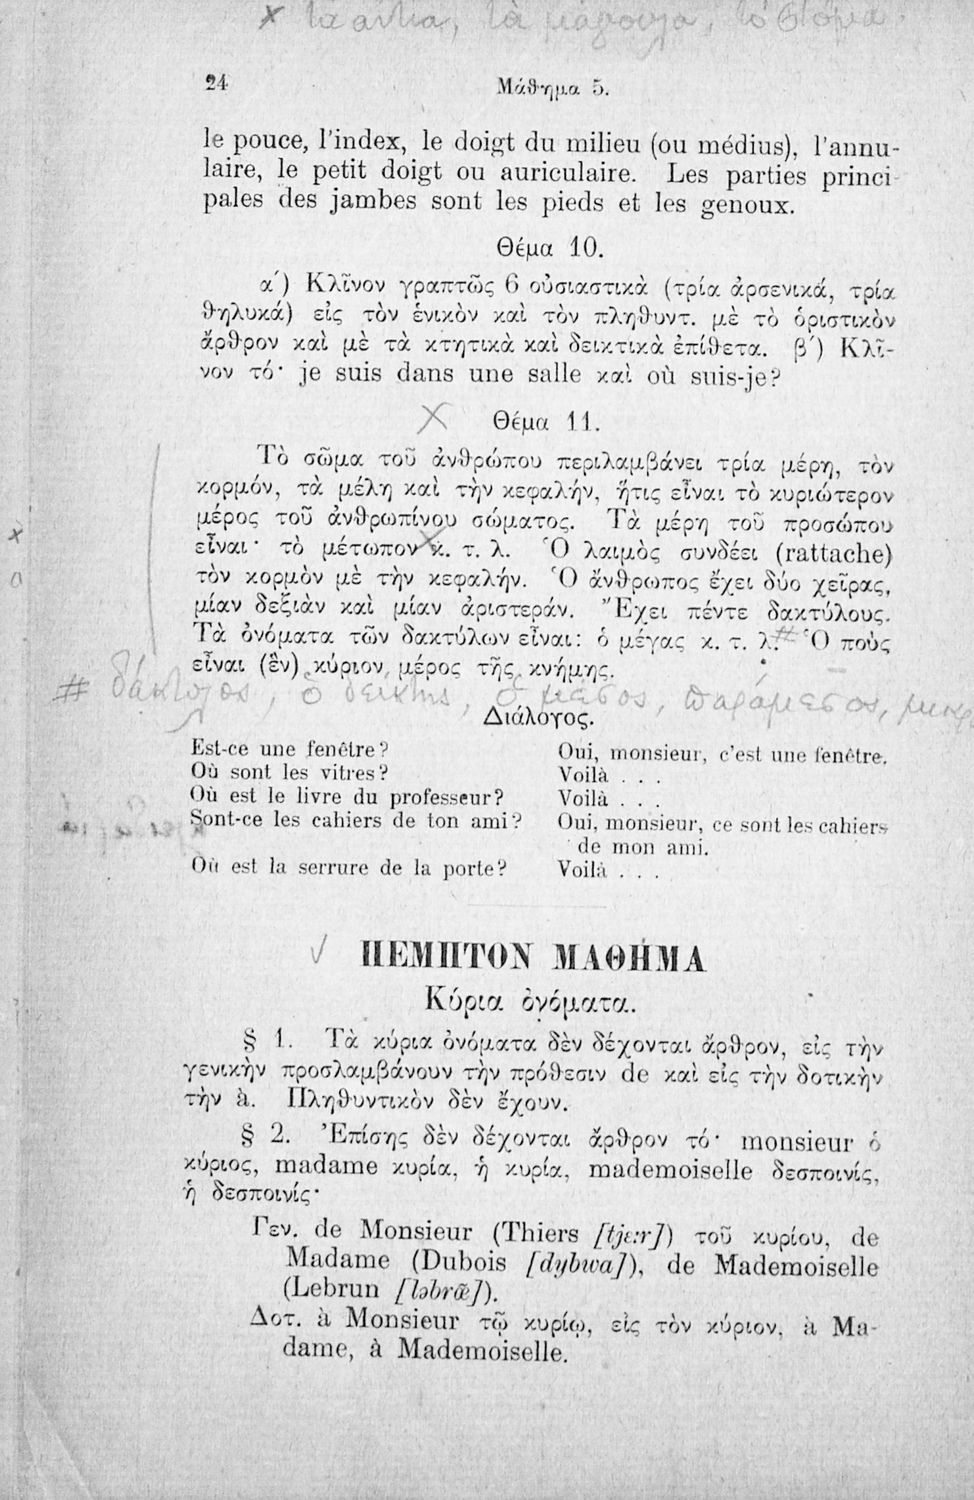 × τα αυτια, τὰ μάγουλα, τὸ στόμα.
24 Μάθημα 5.
le pouce, l'index, le doigt du milieu (ou médius), l'annu-
laire, le petit doigt ou auriculaire. Les parties princi-
pales des jambes sont les pieds et les genoux.
Θέμα 10.
α΄) Κλῖνον γραπτῶς 6 οὐσιαστικὰ (τρία ἀρσενικά, τρία
θηλυκά) εἰς τὸν ἑνικὸν καὶ τὸν πληθυντ. μὲ τὸ ὁριστικὸν
ἄρθρον καὶ μὲ τὰ κτητικὰ καὶ δεικτικὰ ἐπίθετα. β΄) Κλῖ-
νον τό· je suis dans une salle καὶ où suis-je?
Θέμα 11.
Τὸ σῶμα τοῦ ἀνθρώπου περιλαμβάνει τρία μέρη, τὸν
κορμόν, τὰ μέλη καὶ τὴν κεφαλήν, ἥτις εἶναι τὸ κυριώτερον
μέρος τοῦ ἀνθρωπίνου σώματος. Τὰ μέρη τοῦ προσώπου
εἶναι· τὸ μέτωπον × κ. τ. λ. Ὁ λαιμὸς συνδέει (rattache)
τὸν κορμὸν μὲ τὴν κεφαλήν. Ὁ ἄνθρωπος ἔχει δύο χεῖρας,
μίαν δεξιὰν καὶ μίαν ἀριστεράν. Ἔχει πέντε δακτύλους.
Τὰ ὀνόματα τῶν δακτύλων εἶναι: ὁ μέγας κ. τ. λ. # Ὁ ποὺς
εἶναι (ἓν) κύριον μέρος τῆς κνήμης.
# δάκτυλος, ὁ δείκτης, ὁ μέσος, παράμεσος,
Διάλογος.
Est-ce une fenêtre? Oui, monsieur, c'est une fenêtre.
Où sont les vitres? Voilà . . .
Où est le livre du professeur? Voilà . . .
Sont-ce les cahiers de ton ami? Oui, monsieur, ce sont les cahiers
de mon ami.
Où est la serrure de la porte? Voilà . . .
ΠΕΜΠΤΟΝ ΜΑΘΗΜΑ
Κύρια ὀνόματα.
§ 1. Τὰ κύρια ὀνόματα δὲν δέχονται ἄρθρον, εἰς τὴν
γενικὴν προσλαμβάνουν τὴν πρόθεσιν de καὶ εἰς τὴν δοτικὴν
τὴν à. Πληθυντικὸν δὲν ἔχουν.
§ 2. Ἐπίσης δὲν δέχονται ἄρθρον τό· monsieur ὁ
κύριος, madame κυρία, ἡ κυρία, mademoiselle δεσποινίς,
ἡ δεσποινίς·
Γεν. de Monsieur (Thiers [tjɛ:r]) τοῦ κυρίου, de
Madame (Dubois [dybwa]), de Mademoiselle
(Lebrun [ləbrœ̃]).
Δοτ. à Monsieur τῷ κυρίῳ, εἰς τὸν κύριον, à Ma-
dame, à Mademoiselle.